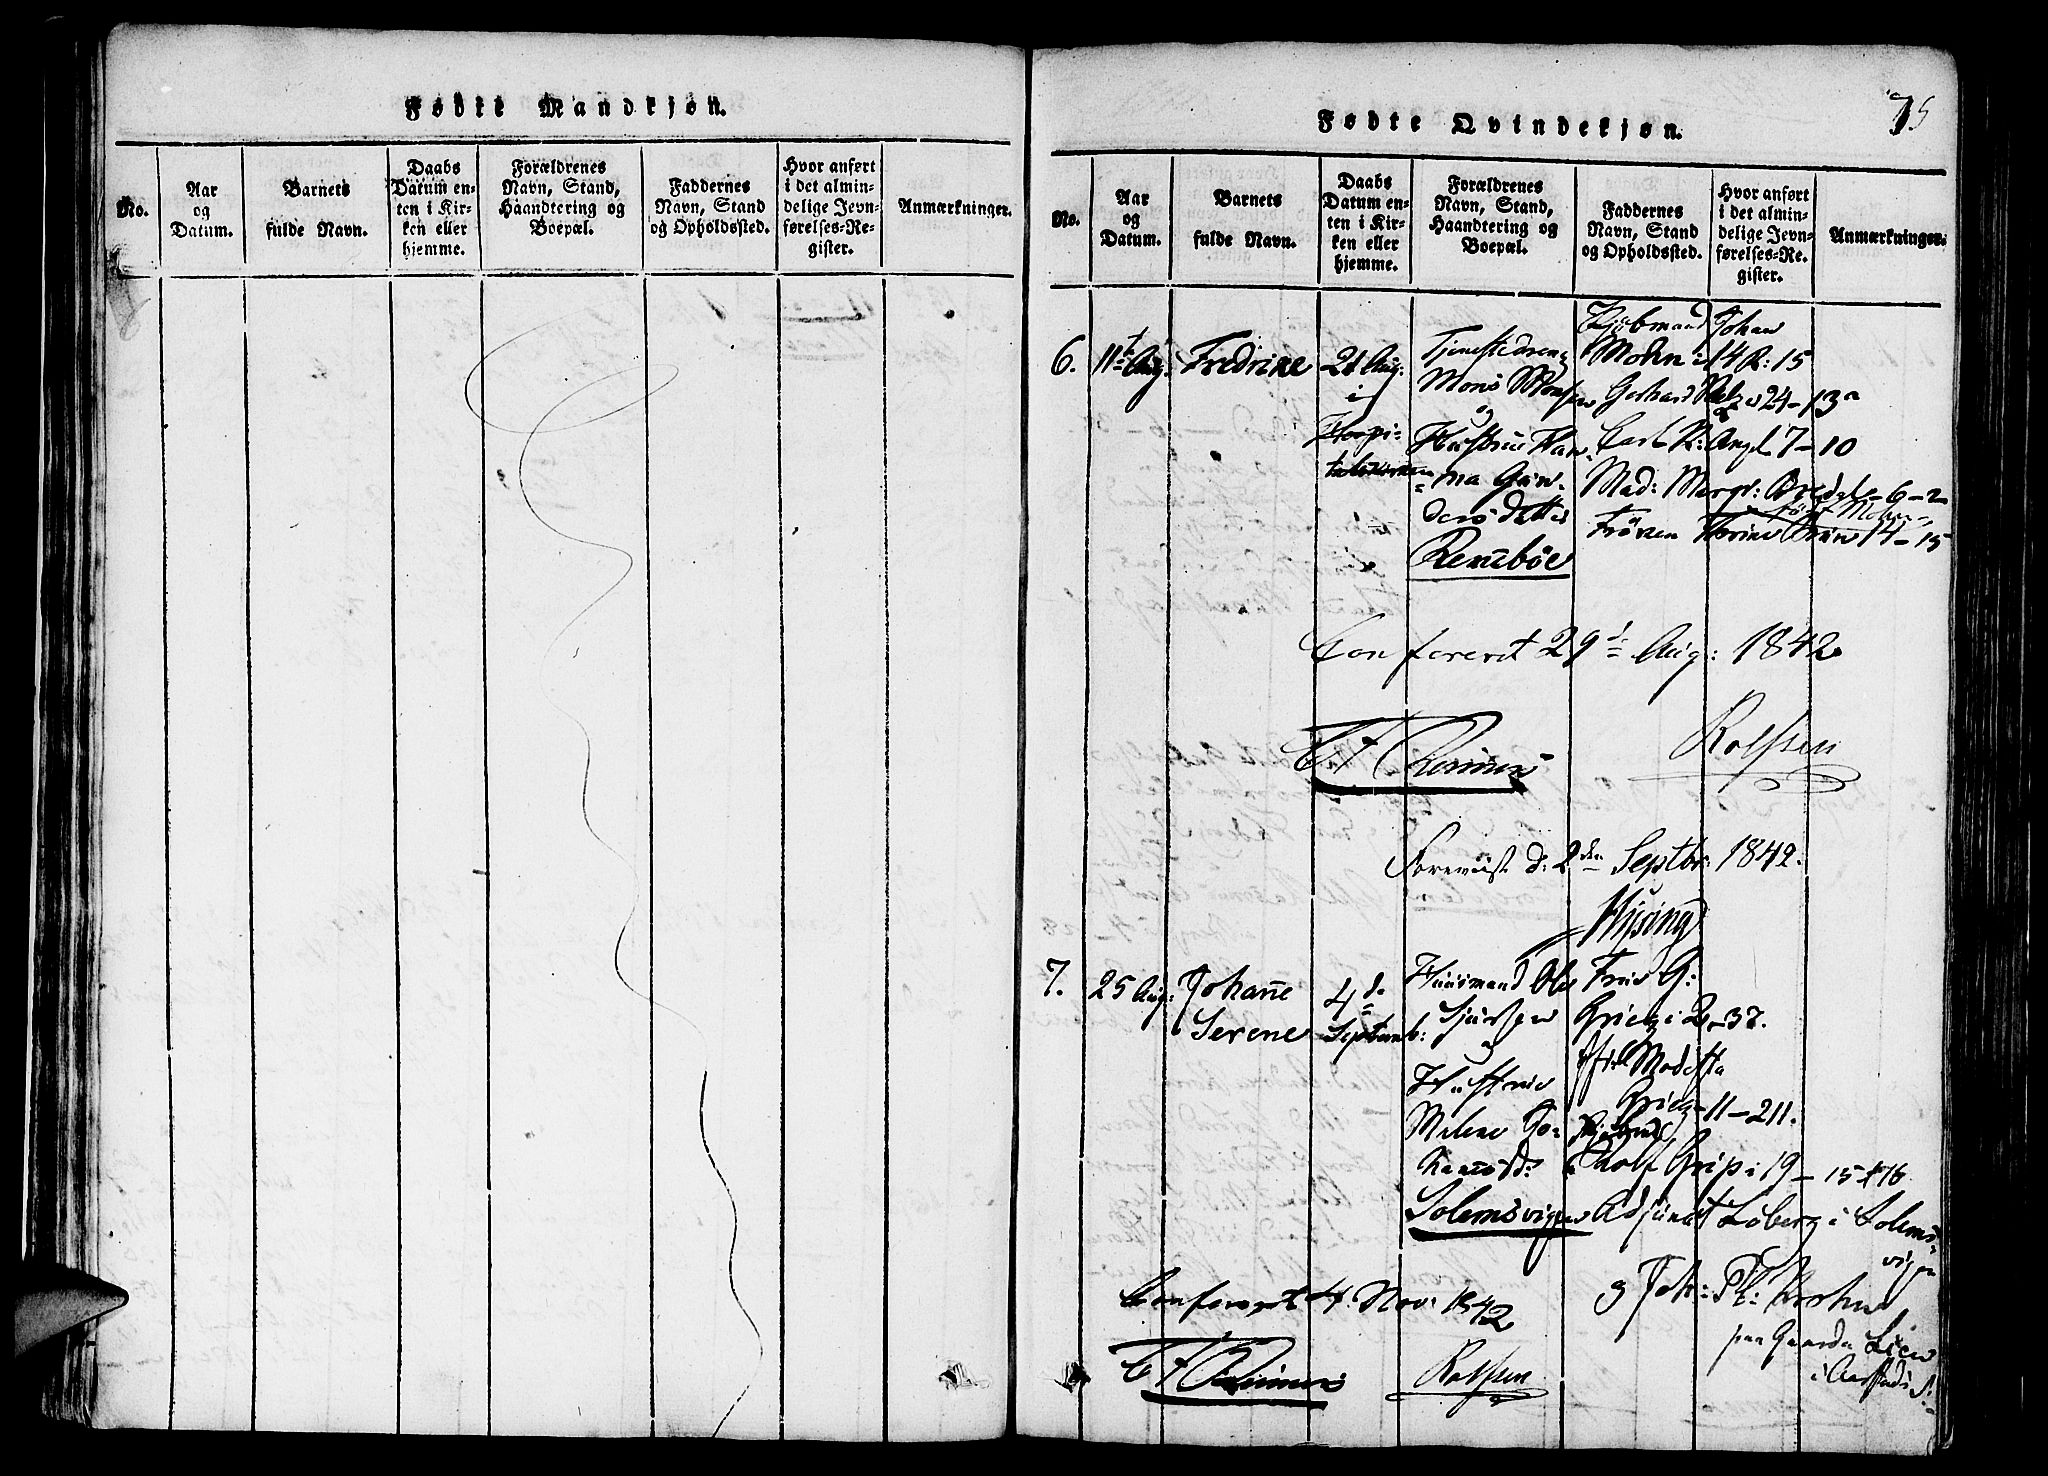 Fødte Mandkjøn.
No.
Aar
og
Datum.
Barnets
fulde Navn.
Daabs
Datum en-
ten i Kir-
ken eller
hjemme.
Forældrenes
Navn, Stand,
Haandtering og
Boepæl.
Faddernes
Navn, Stand
og Opholdssted.
Hvor anført
i det almin-
delige Jevn-
førelses-Re-
gister.
Anmærkninger.
75
Fødte Qvindekjøn.
No.
Aar
og
Datum.
Barnets
fulde Navn.
Daabs
Datum en-
ten i Kir-
ken eller
hjemme.
Forældrenes
Navn, Stand,
Haandtering og
Boepæl.
Faddernes
Navn, Stand
og Opholdssted.
Hvor anført
i det almin-
delige Jevn-
førelses-Re-
gister.
Anmærkninger.
6.
11te Aug:
Fredrine
21 Aug:
i
Hospi-
Tjenestedreng
Mons Monsen
og
Hustrue Han-
na Gun-
dersdatter
Kjøbmand Johan
Mohn i 14 R: 15
Gerhard 24 – 13
Carl 7 – 10
Mad: Margr: 6 – 2
Frøken 14 – 15
Confereret 29de Aug: 1842
Rolfsen
Foreviist d: 2den Septbr: 1842.
7.
25 Aug:
Johanne
Serene
4de
Septemb:
Huusmand Ole
Sjursen
Hustrue
Milene Jo-
hansd:
Solemsvigen
Frue G:
Grieg i 2 – 37.
Modesta
Grieg – 11 – 211.
Rolf Grip i 19 – 15 & 16
Adjunct Loberg i Solems-
vigen
og Joh: Krohn
paa Gaarden
i
Confereret 4. Nov: 1842
Rolfsen